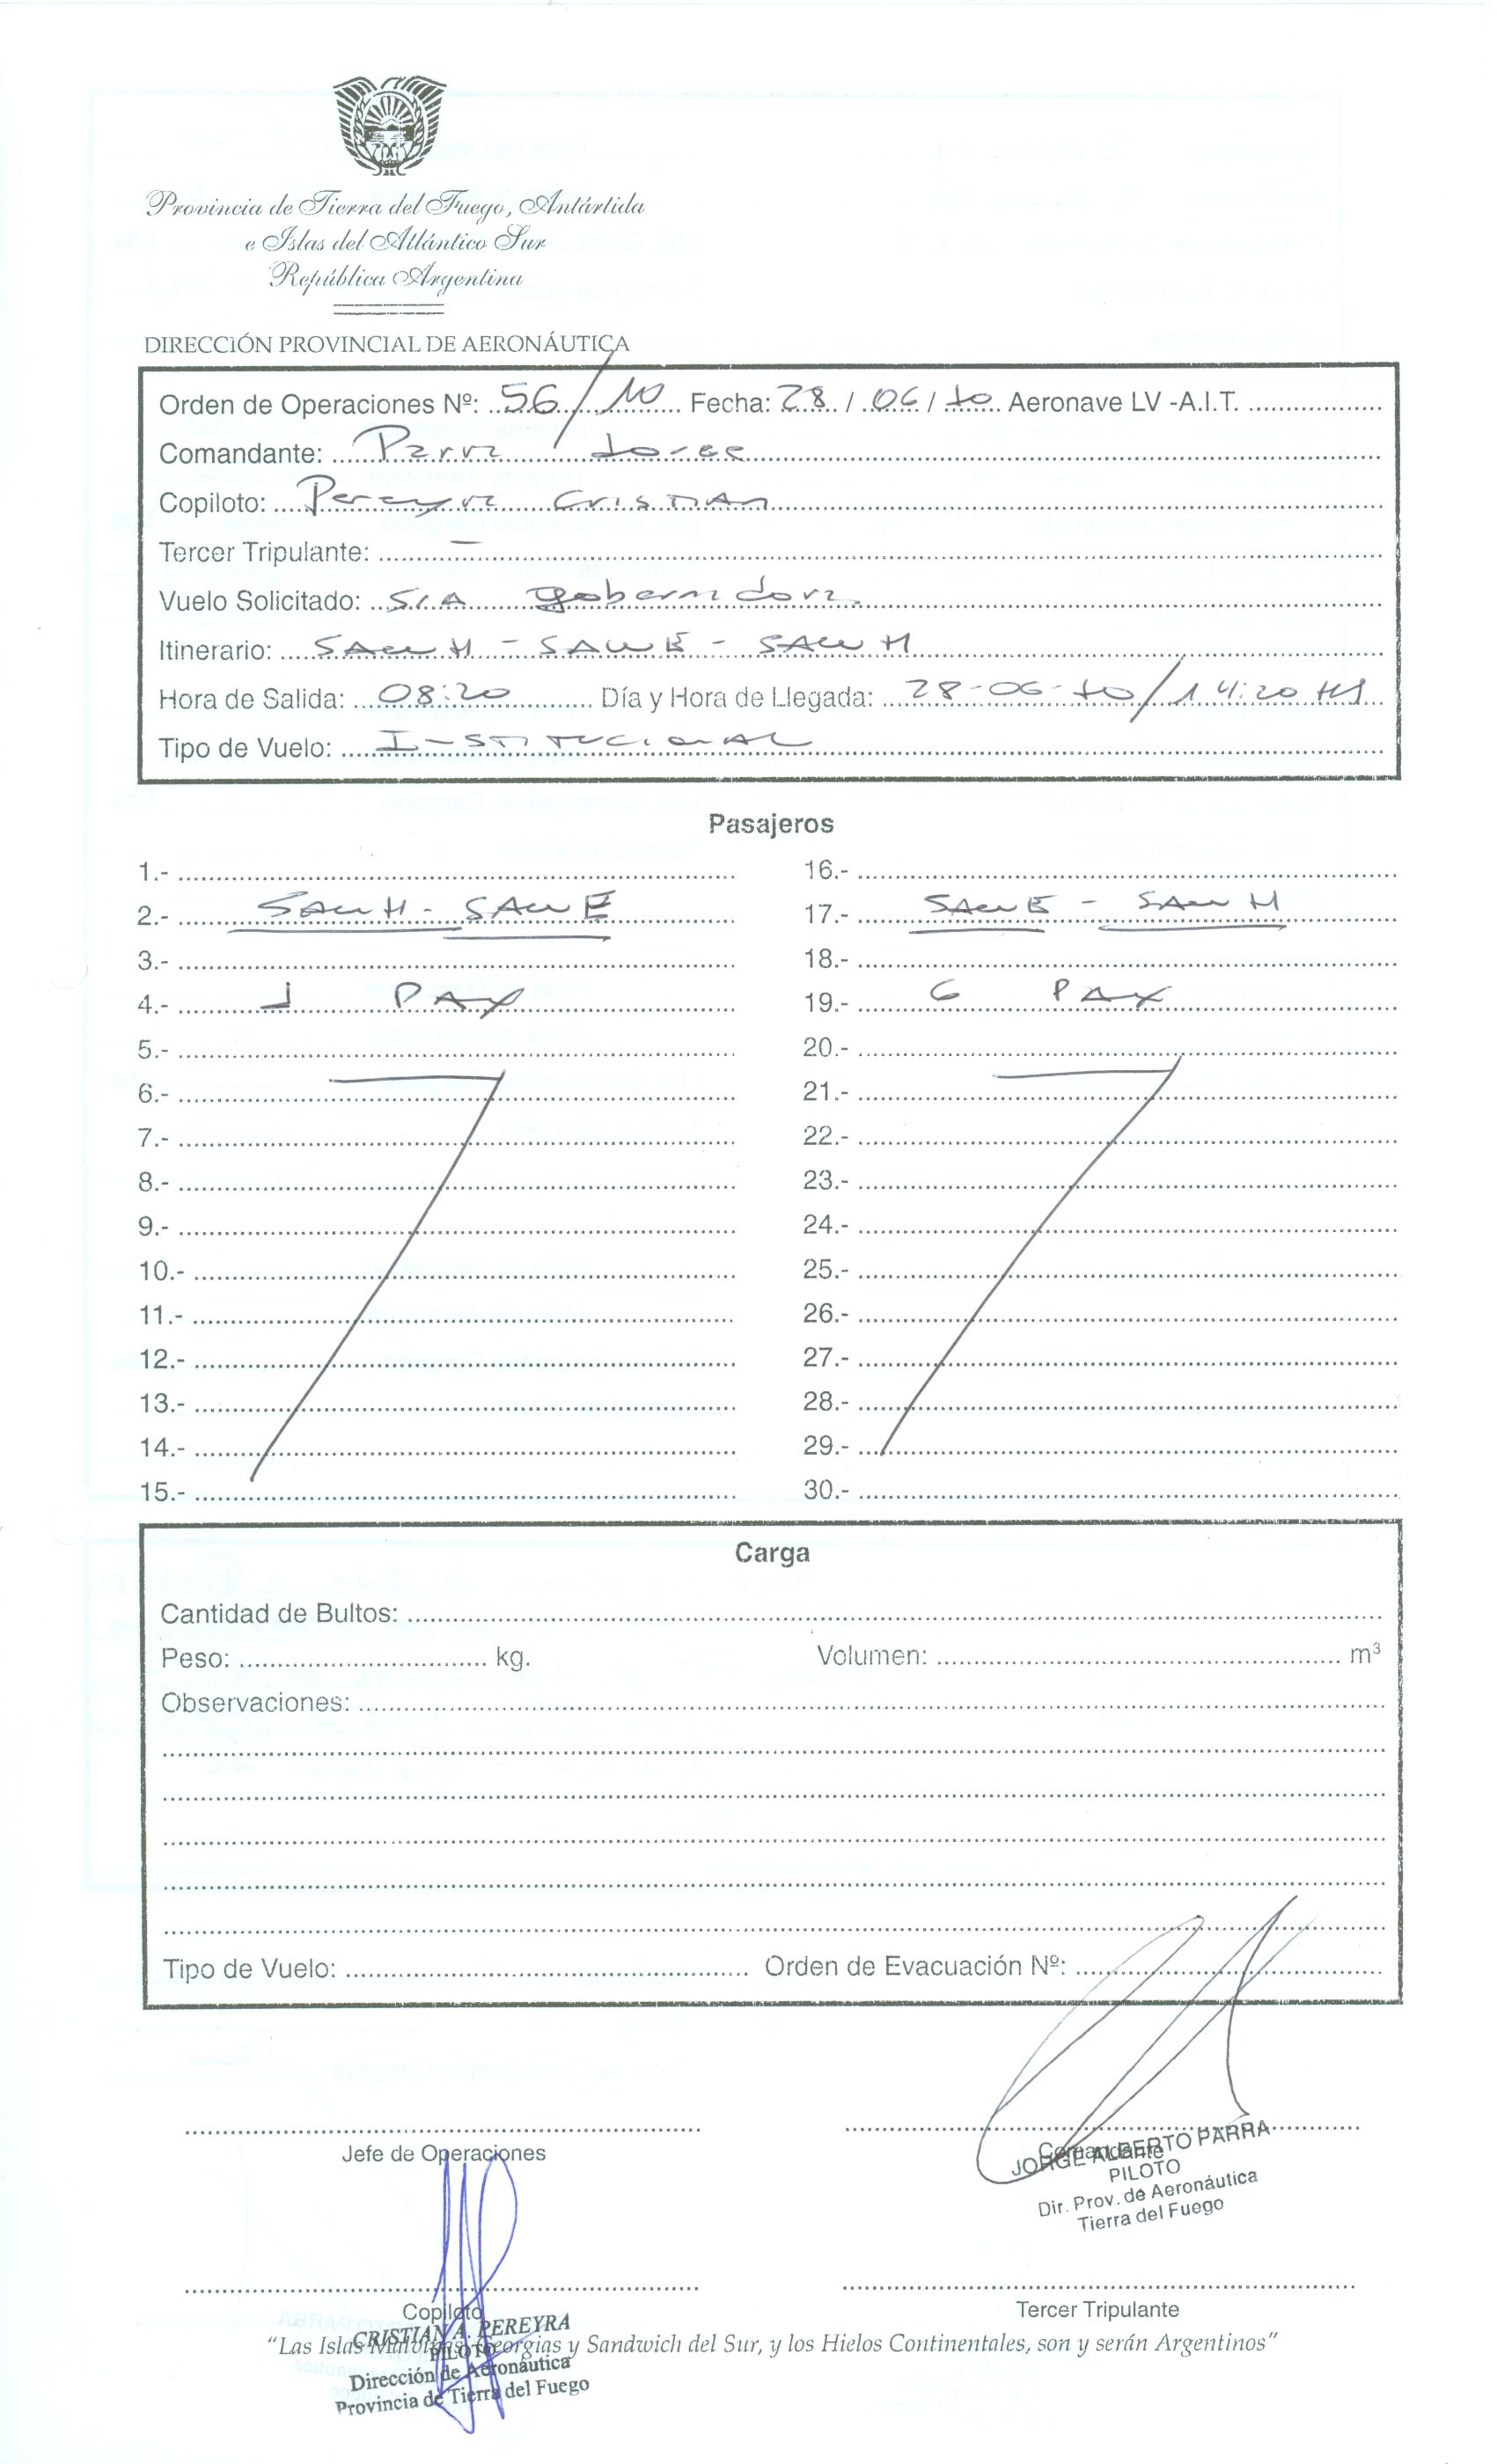 Provincia de Tierra del Fuego, Antártida
e Islas del Atlántico Sur
República Argentina
DIRECCIÓN PROVINCIAL DE AERONÁUTICA
Orden de Operaciones Nº: 56/10 Fecha: 28 / 06 / 10 Aeronave LV -A.I.T.
Comandante: Parra Jorge
Copiloto: Pereyra Cristian
Tercer Tripulante: -
Vuelo Solicitado: Sra gobernadora
Itinerario: SAWH - SAWE - SAWH
Hora de Salida: 08:20 Día y Hora de Llegada: 28-06-10/14:20 HS
Tipo de Vuelo: INSTITUCIONAL
Pasajeros
1.- 16.-
2.- SAWH - SAWE 17.- SAWE - SAWH
3.- 18.-
4.- 1 PAX 19.- 6 PAX
5.- 20.-
6.- 21.-
7.- 22.-
8.- 23.-
9.- 24.-
10.- 25.-
11.- 26.-
12.- 27.-
13.- 28.-
14.- 29.-
15.- 30.-
Carga
Cantidad de Bultos:
Peso: kg. Volumen: m³
Observaciones:
Tipo de Vuelo: Orden de Evacuación Nº:
Jefe de Operaciones Comandante
JORGE ALBERTO PARRA
PILOTO
Dir. Prov. de Aeronáutica
Tierra del Fuego
Copiloto Tercer Tripulante
CRISTIAN A. PEREYRA
"Las Islas Malvinas, Georgias y Sandwich del Sur, y los Hielos Continentales, son y serán Argentinos"
PILOTO
Dirección de Aeronáutica
Provincia de Tierra del Fuego